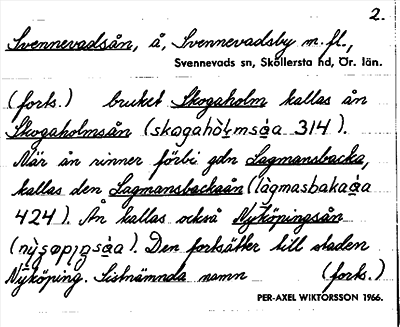 2.
Svennevadsån, å, Svennevadsby m.fl.,
Svennevads sn, Sköllersta hd, Ör. län.
(forts.) bruket Skogaholm kallas ån
Skogaholmsån (skagahòlmsa̱a 314).
När ån rinner förbi gdn Lagmansbacka,
kallas den Lagmansbackaån (làgmasbakaa̱a
424). Ån kallas också Nyköpingsån
Den fortsätter till staden
Nyköping. Sistnämnda namn (forts.)
PER-AXEL WIKTORSSON 1966.